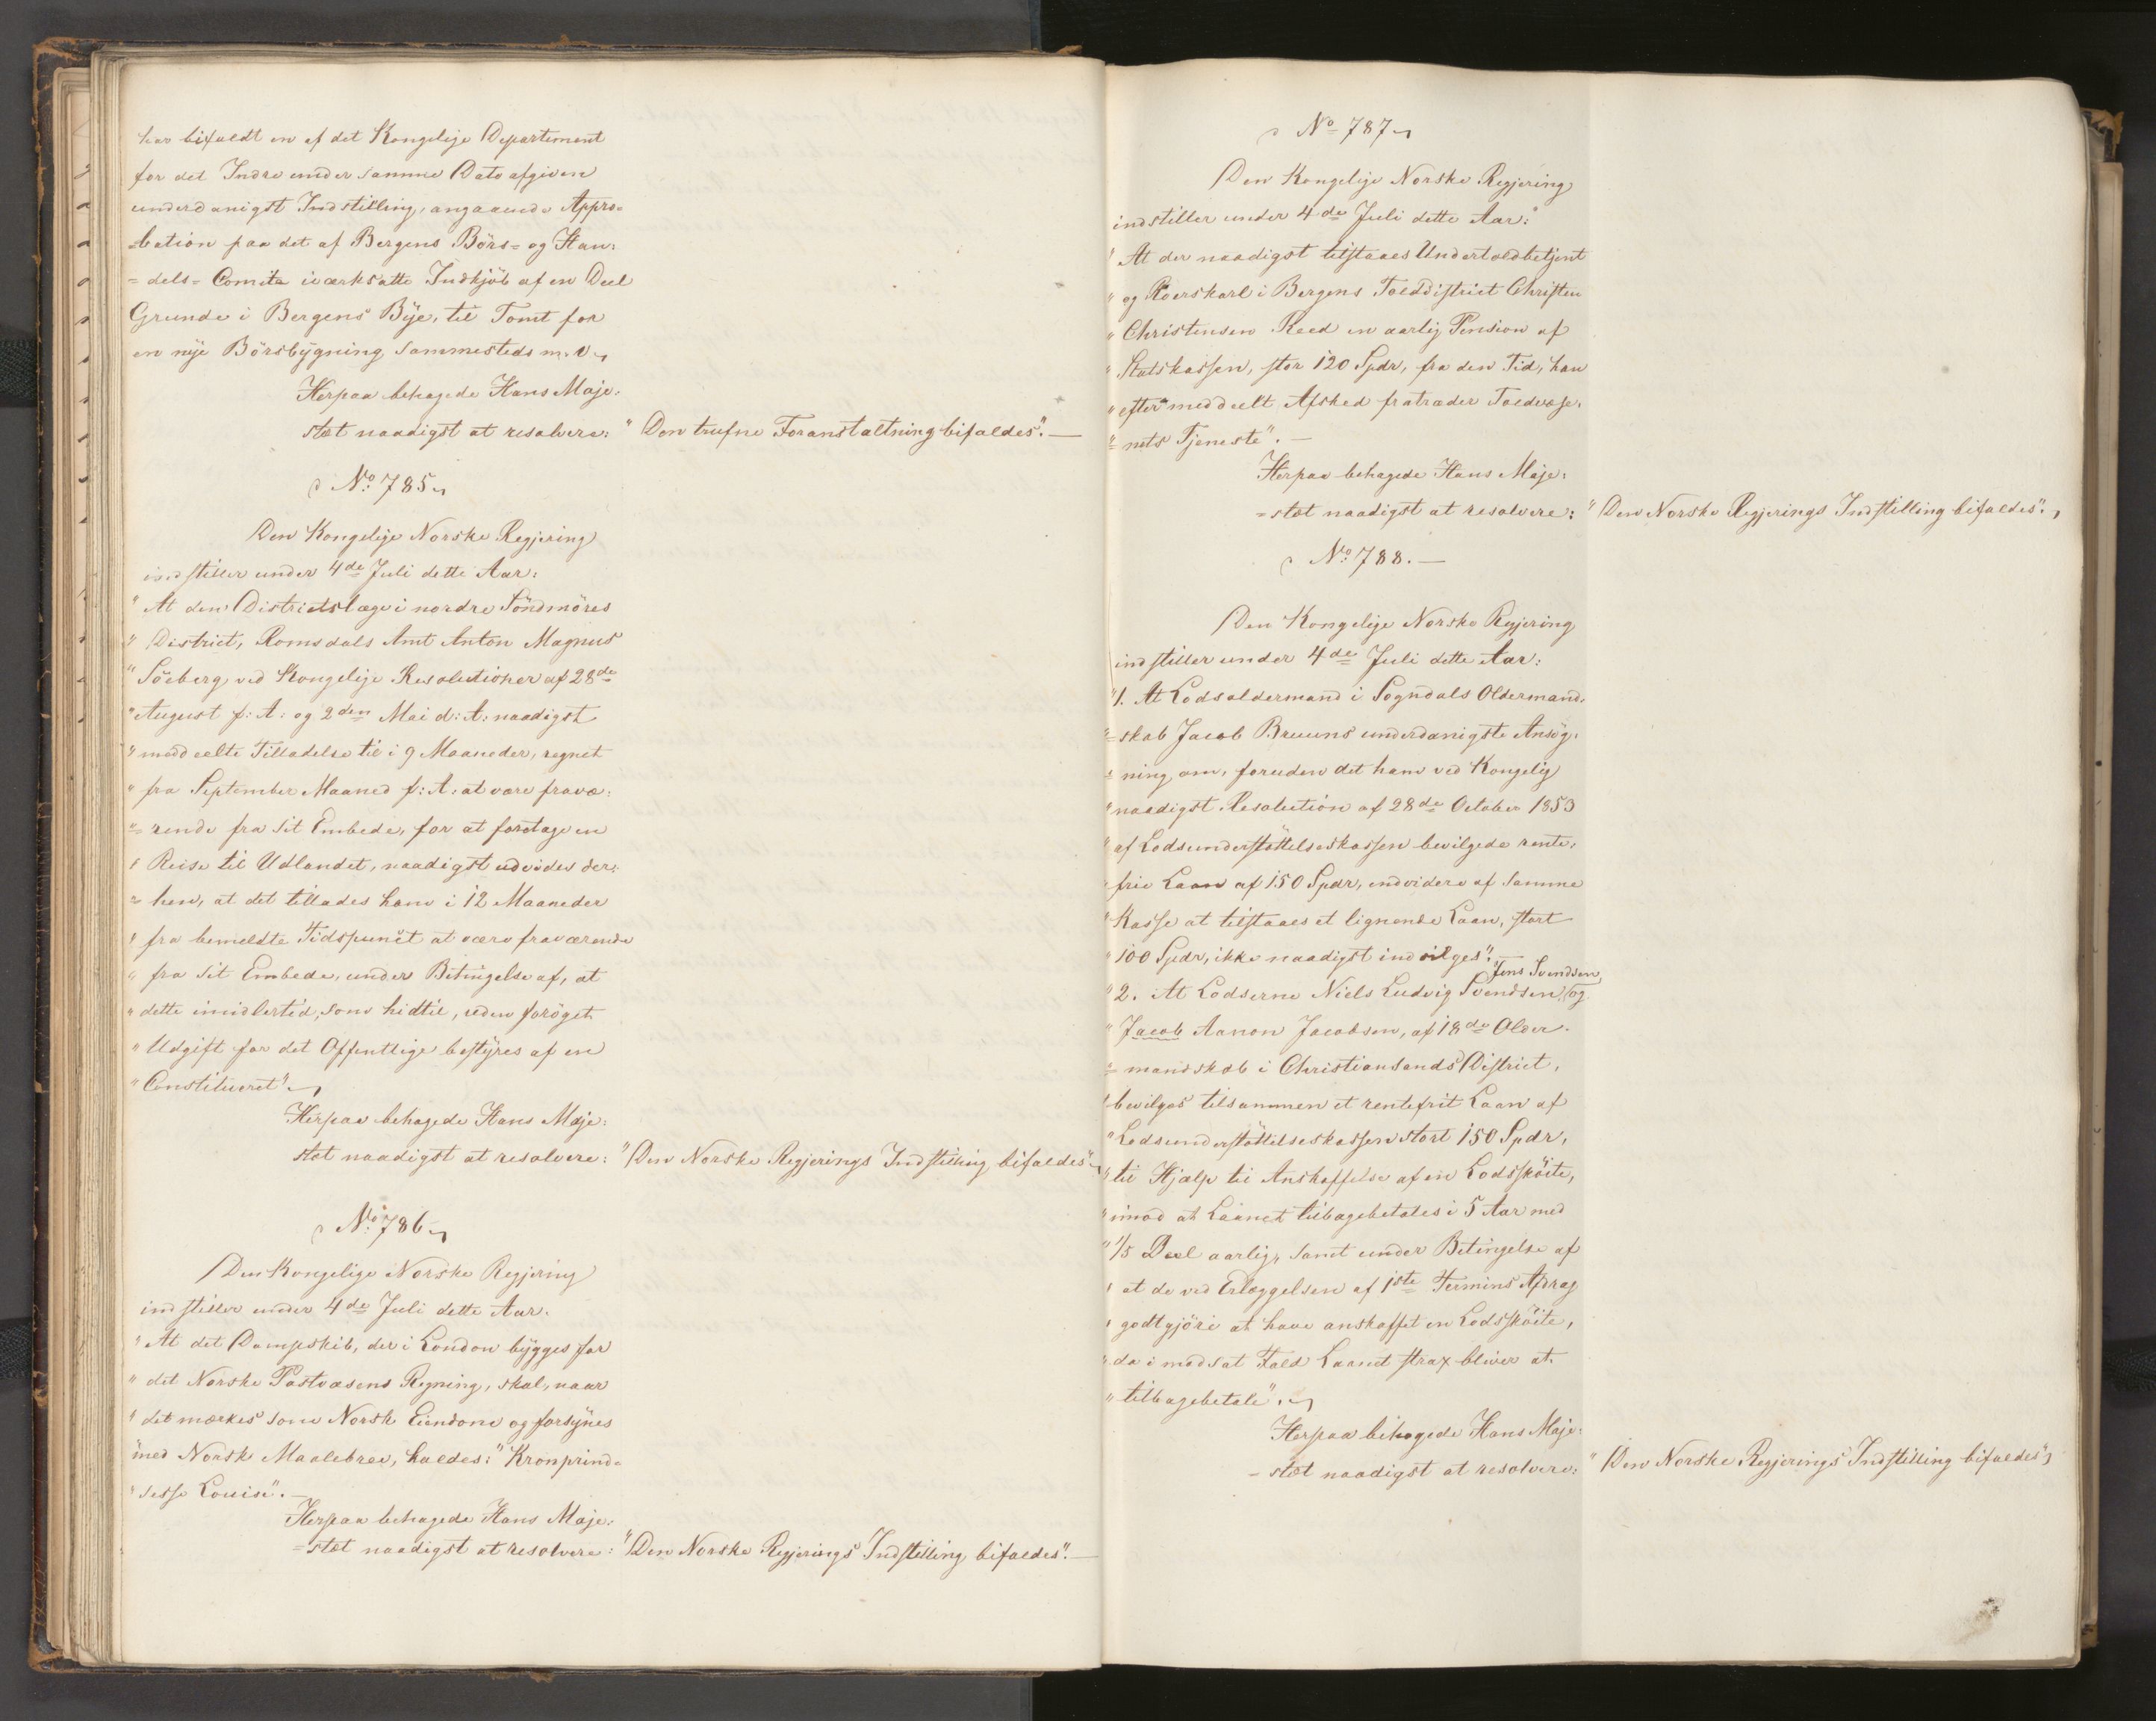 har bifaldt en af det Kongelige Departement
for det Indre under samme Dato afgiven
underdanigst Indstilling, angaaende Appro=
=bation paa det af Bergens Börs= og Han:
=dels=Comite iværksatte Indkjöb af en Deel
Grunde i Bergens Bÿe, til Tomt for
en nÿe Börsbÿgning sammesteds m.v.
Herpaa behagede Hans Maje:
stæt naadigst at resolvere: "Den trufne Foranstaltning bifaldes".—
No 785.
Den Kongelige Norske Regjering
indstiller under 4de Juli dette Aar:
"At den Districtslæge i nordre Söndmöres
"District, Romsdals Amt Anton Magnus
"Söeberg ved Kongelige Resolutioner af 28de
"August f: A: og 2den Mai d: A: naadigst
"meddeelte Tilladelse til i 9 Maaneder, regnet
"fra September Maaned f: A: at være fravæ:
"=rende fra sit Embede, for at foretage en
"Reise til Udlandet, naadigst udvides der:
"=hen, at det tillades ham i 12 Maaneder
"fra bemeldte Tidspunct at være fraværende
"fra sit Embede, under Betingelse af, at
"dette imidlertid, som hidtil, uden foröget
"Udgift for det Offentlige bestÿres af en
"Constitueret".
Herpaa behagede Hans Maje:
stæt naadigst at resolvere: "Den Norske Regjerings Indstilling bifaldes".
No 786.
Den Kongelige Norske Regjering
indstiller under 4de Juli dette Aar:
"At det Dampskib, der i London bÿgges for
"det Norske Postvæsens Regning, skal, naar
"det mærkes som Norsk Eiendom og forsÿnes
"med Norsk Maalebrev, kaldes: "Kronprind=
"sesse Louise".—
Herpaa behagede Hans Maje:
=stæt naadigst at resolvere: "Den Norske Regjerings Indstilling bifaldes".—
No 787.
Den Kongelige Norske Regjering
indstiller under 4de Juli dette Aar:
"At der naadigst tilstaaes Undertoldbetjent
"og Roerskarl i Bergens Tolddistrict Christen
"Christensen Reed en aarlig Pension af
"Statskassen, stor 120 Spdr, fra den Tid, han
"efter meddeelt Afsked fratræder Toldvæse:
"=nets Tjeneste".—
Herpaa behagede Hans Maje:
=stæt naadigst at resolvere: "Den Norske Regjerings Indstilling bifaldes".
No 788.—
Den Kongelige Norske Regjering
indstiller under 4de Juli dette Aar:
"1. At Lodsoldermand i Sogndals Oldermand:
"=skab Jacob Bruuns underdanigste Ansög:
"=ning om, foruden det ham ved Kongelig
"naadigst Resolution af 28de October 1853
"af Lodsunderstöttelseskassen bevilgede rente:
"frie Laan af 150 Spdr, endvidere af samme
"Kasse at tilstaaes et lignende Laan, stort
"100 Spdr, ikke naadigst indvilges".
"2. At Lodserne Niels Ludvig Svendsen, Jens Svendsen og
"Jacob Aanon Jacobsen, af 18de Older:
"=mandskab i Christiansands District,
"bevilges tilsammen et rentefrit Laan af
"Lodsunderstöttelseskassen stort 150 Spdr,
"til Hjælp til Anskaffelse af en Lodsskiöite,
"imod at Laanet tilbagebetales i 5 Aar med
"1/5 Deel aarlig, samt under Betingelse af
"at de ved Erlæggelsen af 1ste Termins Afdrag
"godtgjöre at have anskaffet en Lodsskiöite,
"da i modsat Fald Laanet strax bliver at
"tilbagebetale".
Herpaa behagede Hans Maje:
=stæt naadigst at resolvere: "Den Norske Regjerings Indstilling bifaldes".